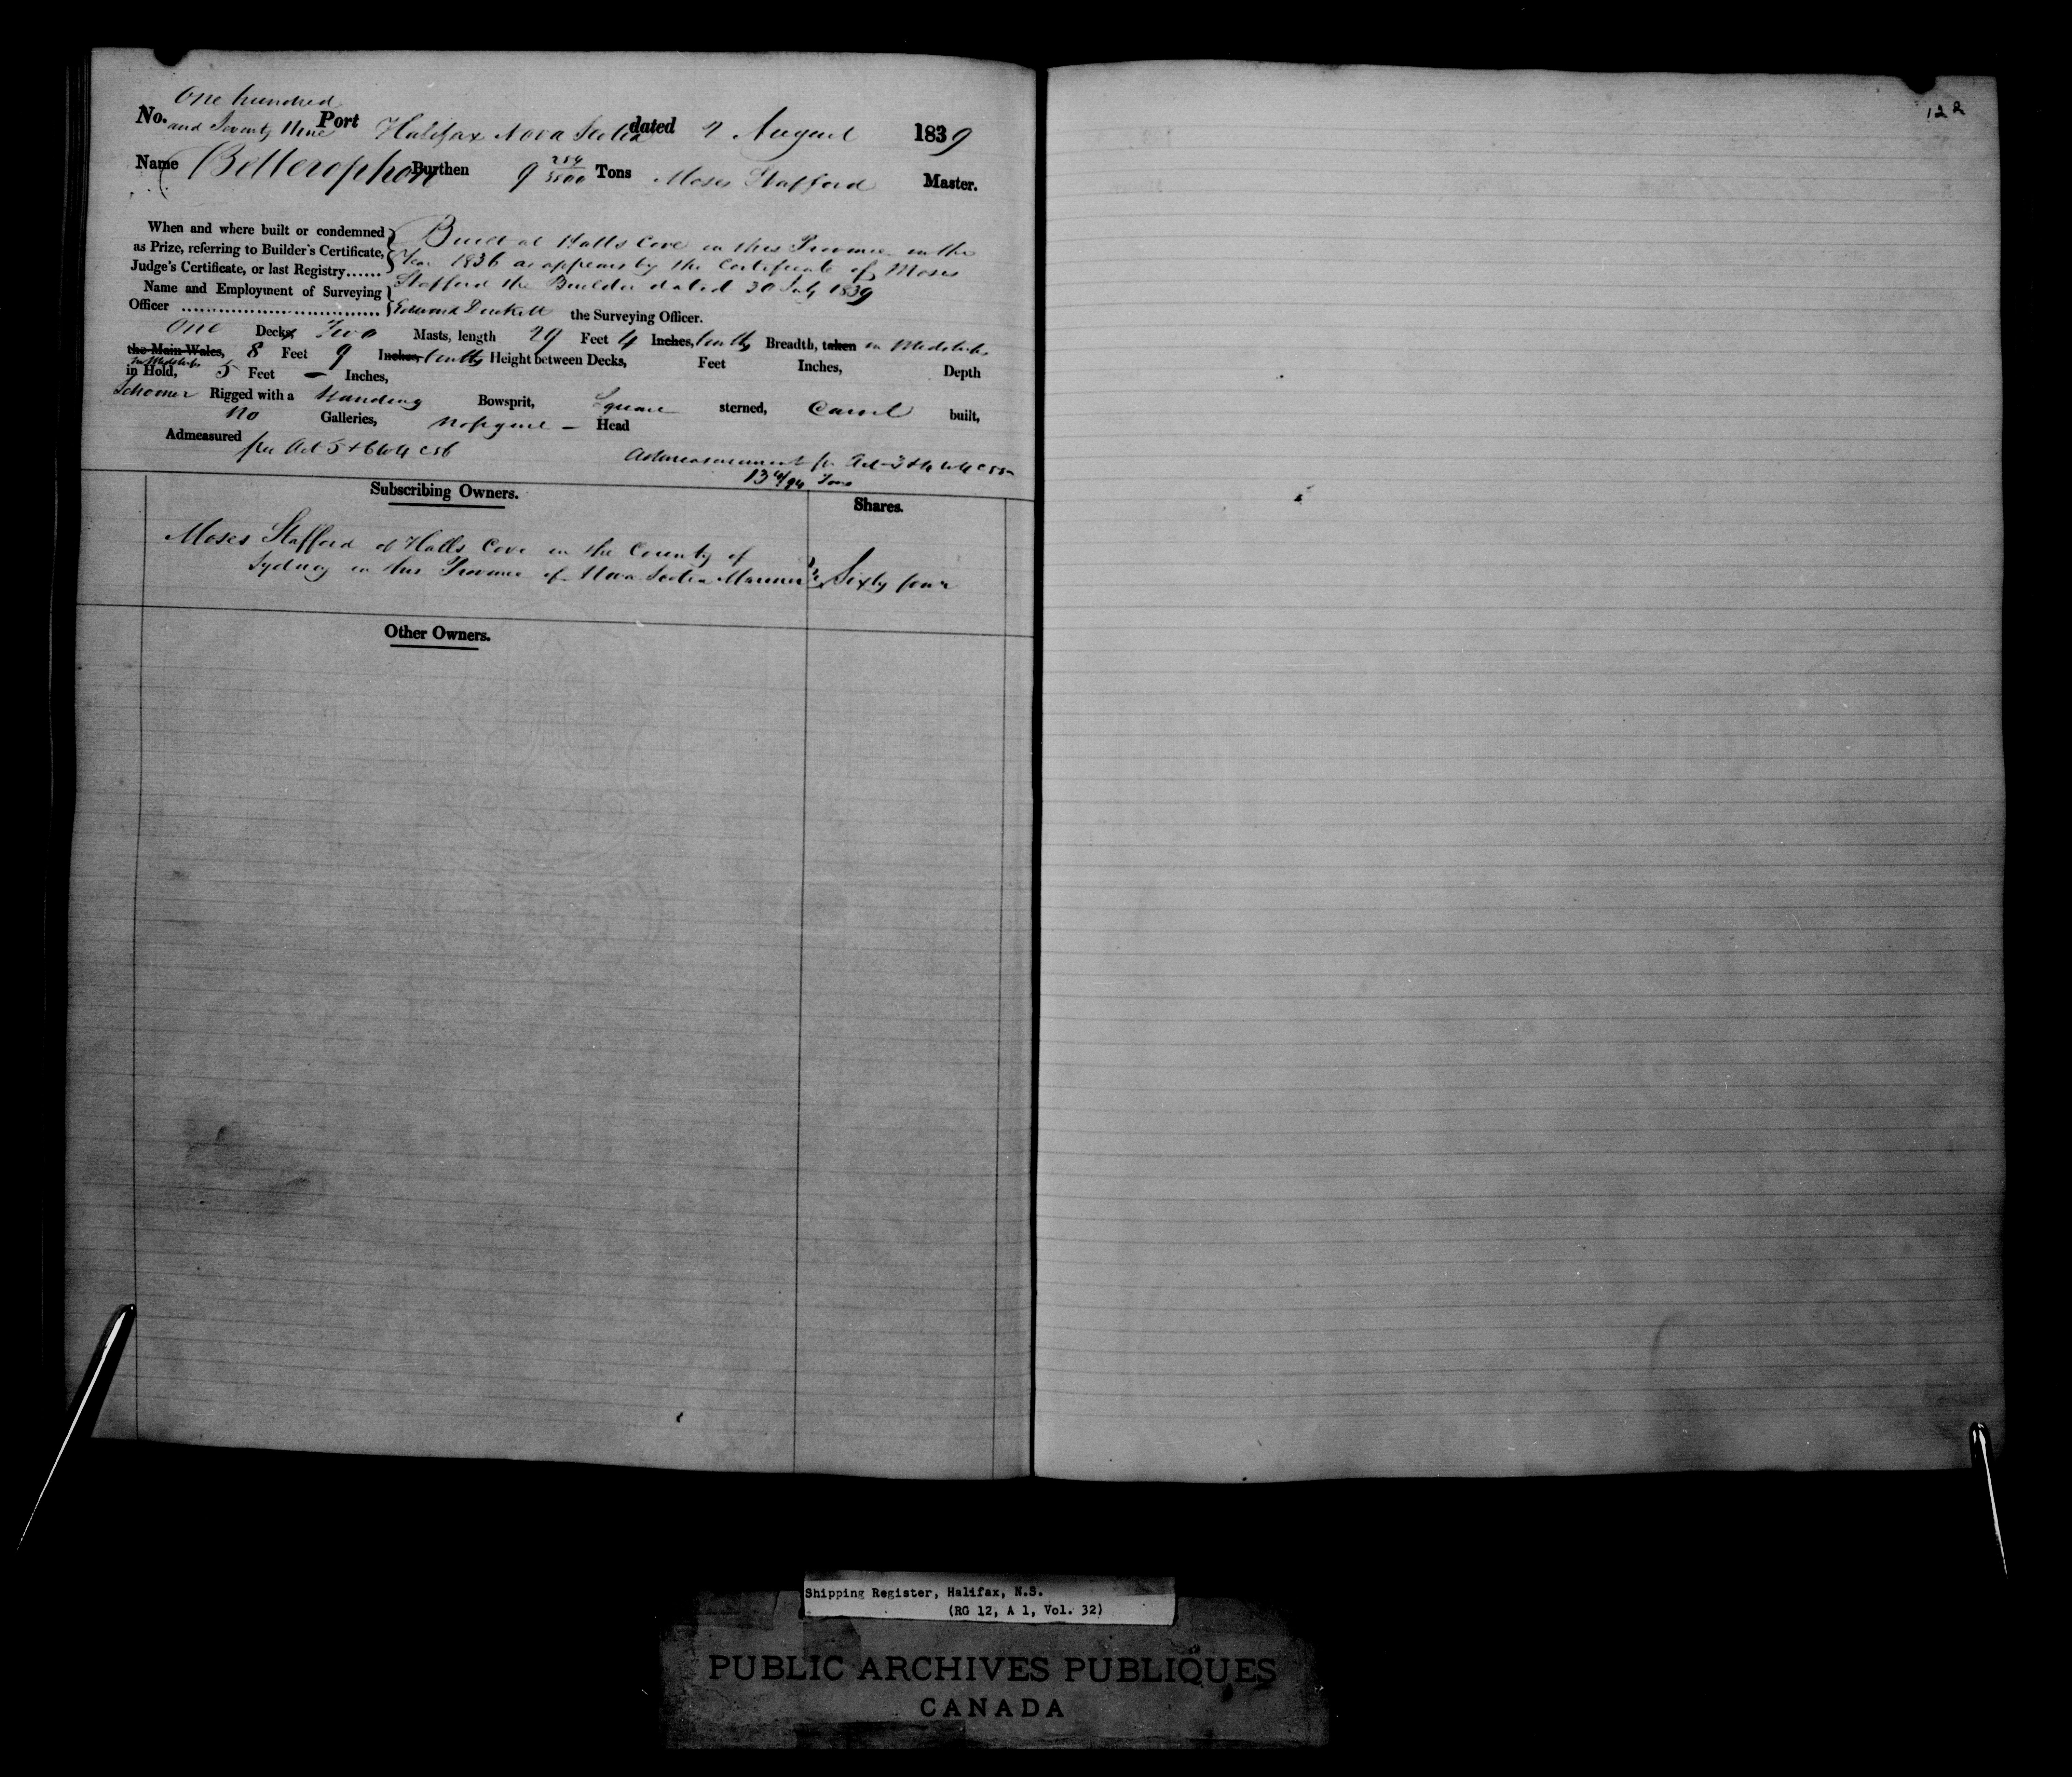 122
One hundred
No. and Seventy Nine Port Halifax Nova Scotia dated 7 August 1839
Name Bellerophon Burthen 9 254/3500 Tons Moses Stafford Master.
When and where built or condemned as Prize, referring to Builder's Certificate, Judge's Certificate, or last Registry......
Built at Halls Cove in this Province in the
Year 1836 as appears by the Certificate of Moses
Stafford the Builder dated 30 July 1839
Name and Employment of Surveying Officer ................................ Edward Duckett the Surveying Officer.
One Decks Two Masts, length 29 Feet 4 Inches, tenths Breadth, taken in Midships
the Main Wales, 8 Feet 9 Inches, tenths Height between Decks, Feet Inches, Depth
in Midships
in Hold, 5 Feet — Inches,
Schooner Rigged with a Standing Bowsprit, Square sterned, Carvel built,
No Galleries, No figure — Head
Admeasured per Act 5 & 6 W 4 C 56
Admeasurement pr Act 3 & 4 W 4 C 55
13 4/94 Tons
Subscribing Owners.
Shares.
Moses Stafford of Halls Cove in the County of
Sydney in this Province of Nova Scotia Mariner Sixty four
Other Owners.
Shipping Register, Halifax, N.S.
(RG 12, A 1, Vol. 32)
PUBLIC ARCHIVES PUBLIQUES
CANADA